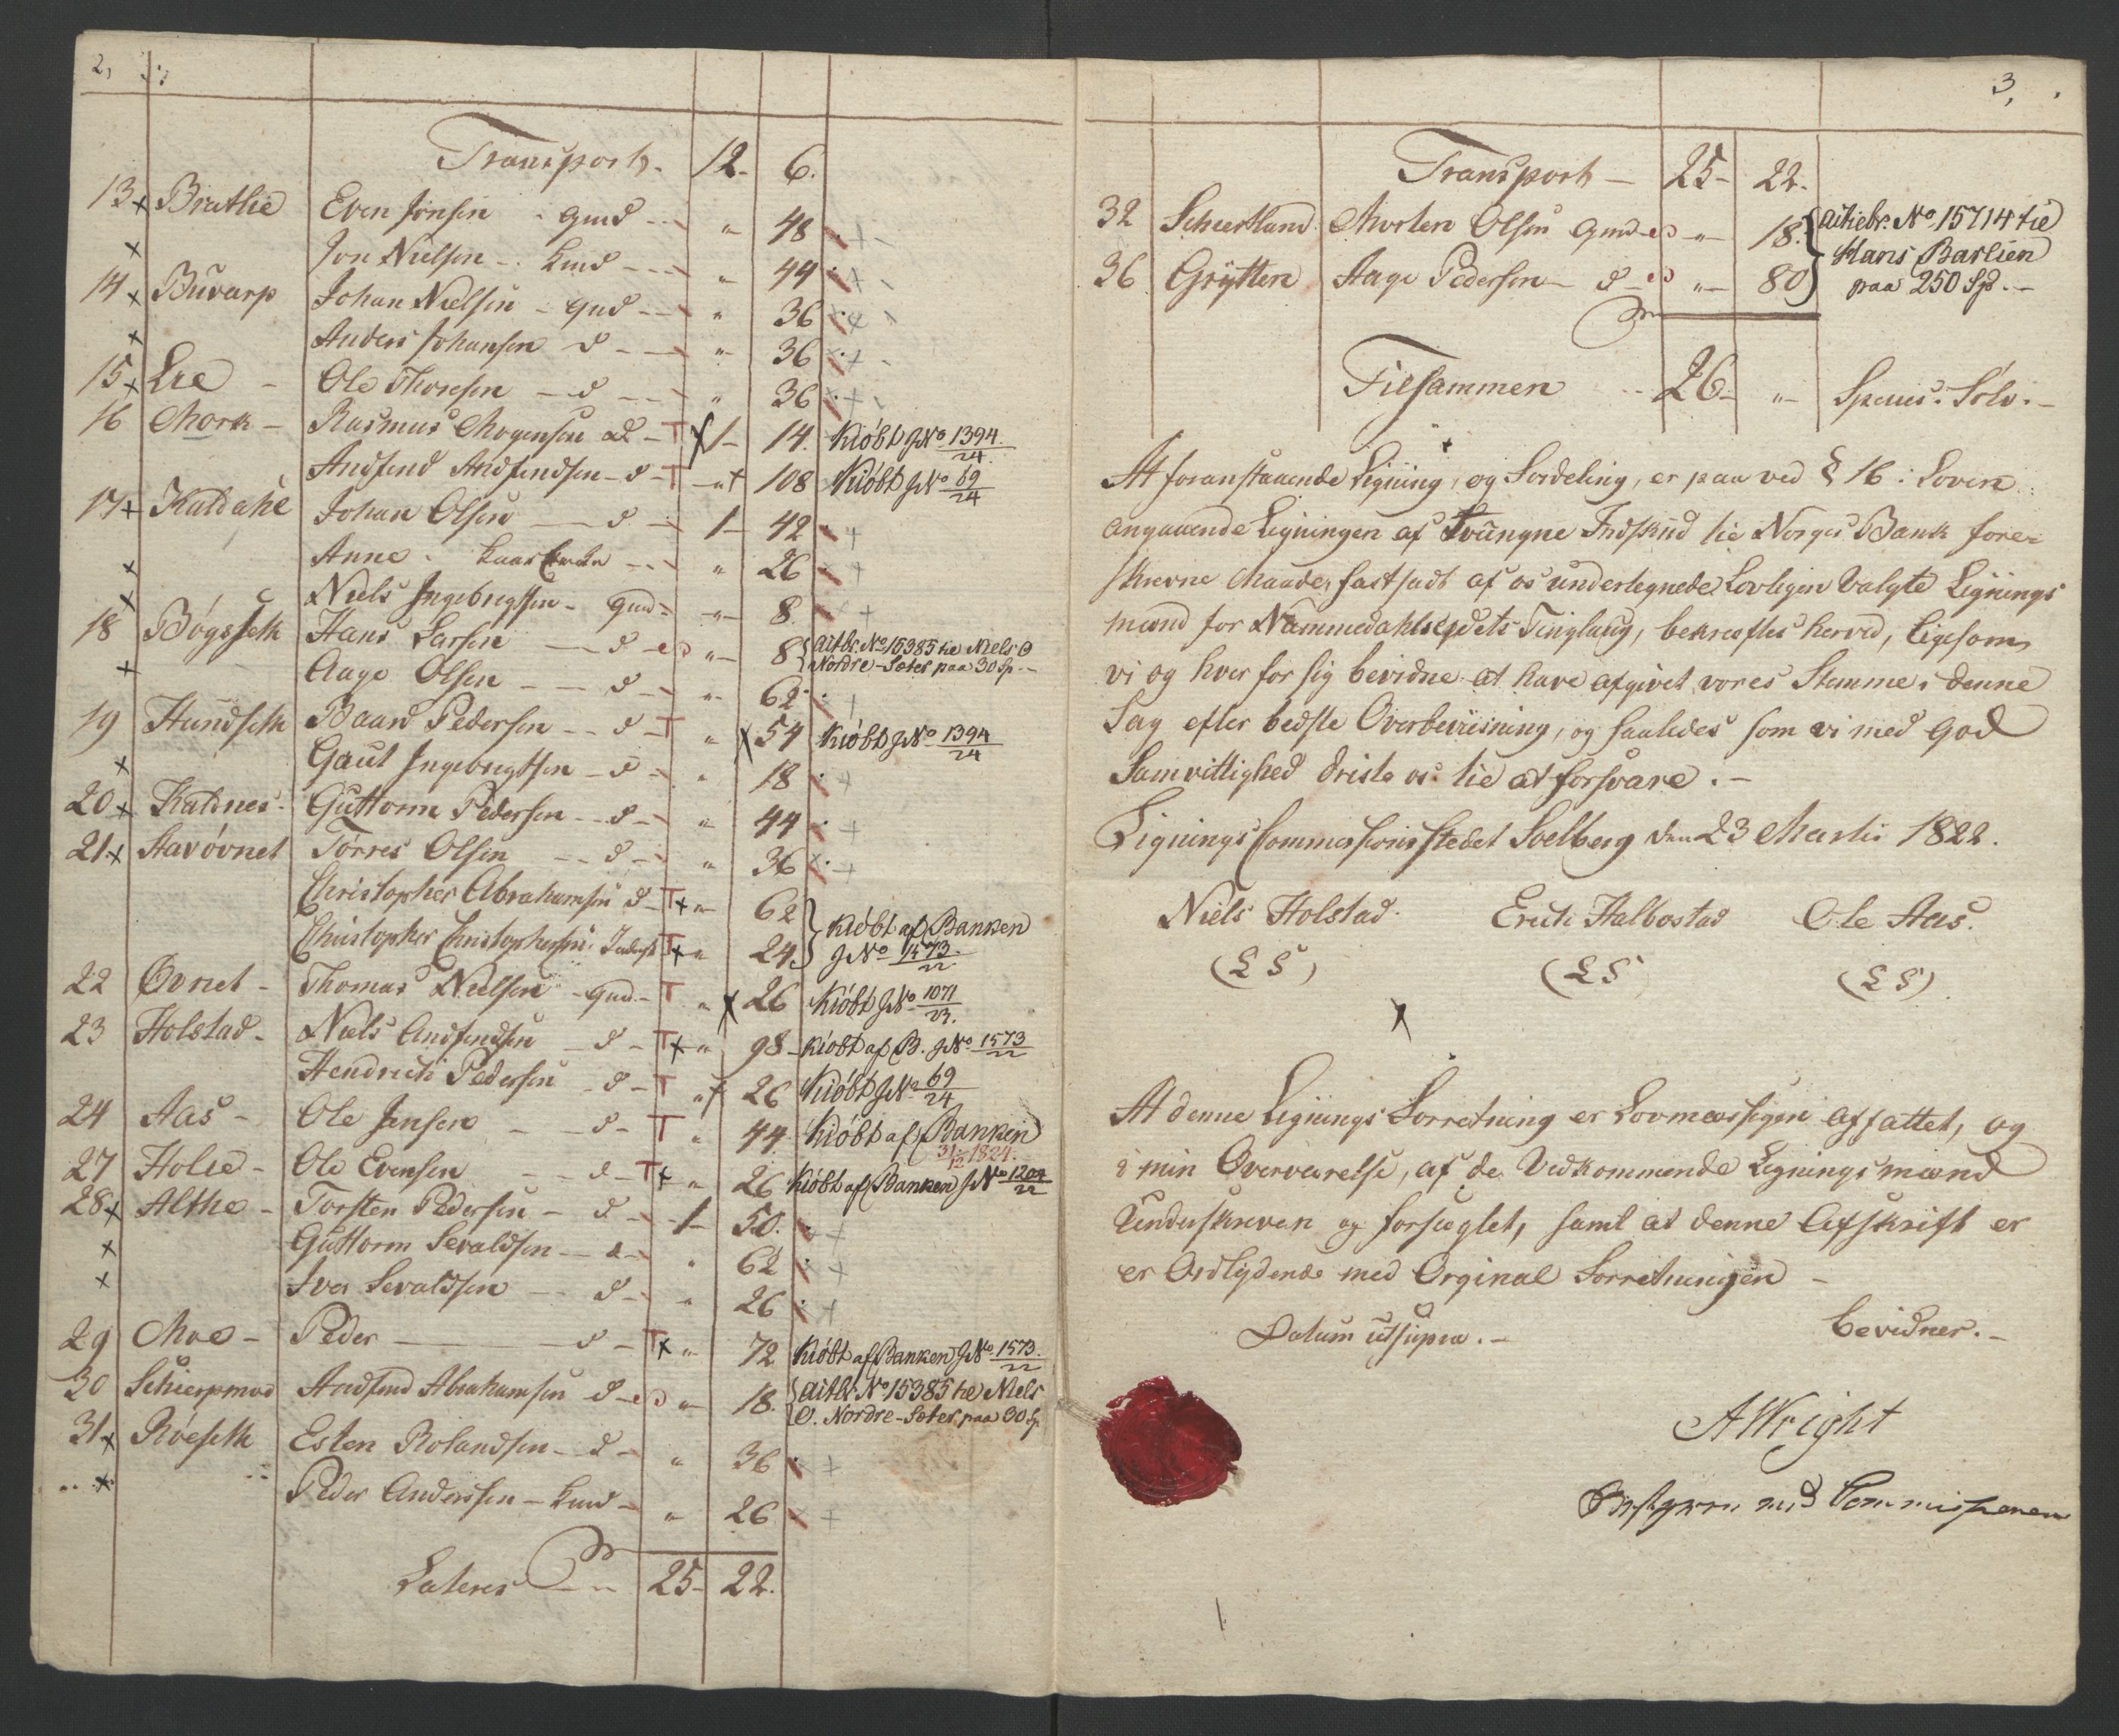 2,
Transport. 12- 6.
13 Bratlie Even Jonsen - Gmd - " 48
Jon Nielsen - Kmd - " 44
14 Buvarp Johan Nielsen - Gmd - " 36
Anders Johansen d - " 36
15 Lie - Ole Thoresen - d - " 36
16 Mork - Rasmus Mogensen d - T 1- 14. Kiöbt JNo 1394/24
Andfind Andfindsen - d - T " 108 Kiöbt JNo 69/24
17 Kaldahl Johan Olsen - d - 1- 42
Anne - " 26
Niels Ingebrigtsen - Gmd - " 8.
18 Bögseth Hans Larsen - d - " 8 Actbr. No 15385 tie Niels O
Nordre-Sæter paa 30 Sp. -
Aage Olsen - d - " 62
19 Hundseth Baard Pedersen - d - T " 54 Kiöbt JNo 1394/24
Gaut Ingebrigtsen - d - " 18
20 Kaldnes - Guttorm Pedersen - d - " 44
21 Aavövnet Törres Olsen - d - " 36
Christopher Abrahamsen d - T " 62 Kiöbt af Banken
Christopher Christophersen Inderst T " 24 JNo 1573/22
22 Øvnet - Thomas Nielsen - Gmd - T " 26 Kiöbt JNo 1071/23.
23 Holstad - Niels Andfindsen - d - T " 98 - Kiöbt af B. JNo 1573/22
Hendrich Pedersen - d - T " 26 Kiöbt JNo 69/24
24 Aas - Ole Jensen - d - T " 44 Kiöbt af Banken
31/12 1824.
27 Holie - Ole Evensen - d - T " 26 Kiöbt af Banken JNo 1204/22
28 Althe - Torsten Pedersen - d - 1- 50.
Guttorm Sevaldsen - d - " 62
Iver Sevaldsen - d - " 26
29 Moe - Peder - d - T " 72 Kiöbt af Banken JNo 1573/22
30 Schierpmoe Andfind Abrahamsen d - " 18. Actbr No 15385 tie Niels
O. Nordre-Sæter paa 30 Sp
31 Röeseth Esten Rolandsen - d - " 36
Peder Anderssen - Kmd - " 26
Lateres - 25- 22.
3,
Transport - 25- 22.
32 Morten Olsen Gmd " 18. Actiebr. No 15714 tie
36 Grytten Aage Pedersen - d - " 80 Hans Barlien
paa 250 Spd. -
Tilsammen - 26- " Specius: Sölv. -
At foranstaaende Ligning, og Fordeling, er paa ved § 16: Loven
angaaende Ligningen af Tvungne Indskud tie Norges Bank fore-
skrevne Maade, fastsadt af os underlegnede Lovligen Valgte Lignings
mænd for Nammedahlseydets Tinglaug, bekræftes herved, ligesom
vi og hver for sig bevidne at have afgivet vores Stemme i denne
Sag efter bedste Overbeviisning, og saaledes som vi med God
Samvittighed driste os tie at forsvare. -
Lignings Commissions Stedet Soelberg den 23 Martii 1822.
Niels Holstad. Erich Halbostad Ole Aas.
(L S) (L S) (L S)
At denne Lignings Forretning er Lovmæssigen affattet, og
i min Overværelse, af de Vedkommende Ligningsmænd
Underskreven og forseglet, samt at denne Afskrift er
er Ordlydende med Orginal Forretningen -
Datum utsupra. - bevidner. -
AWright
Bestyrer ved Commissionen